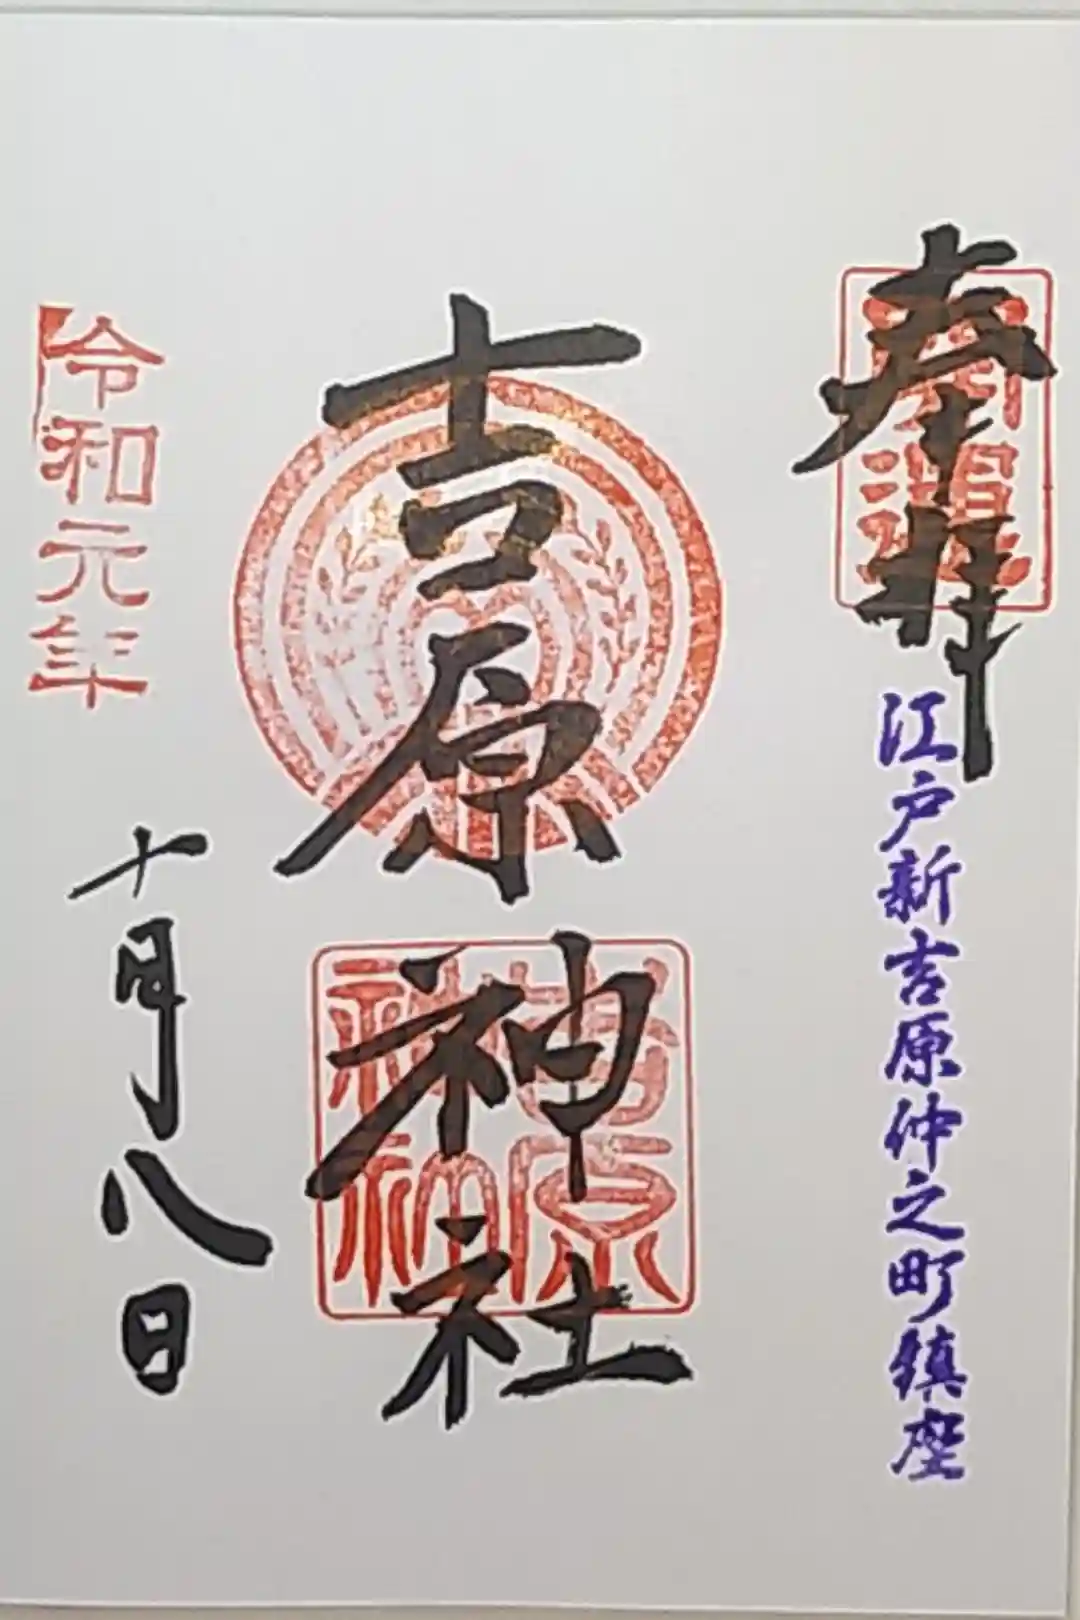 奉拝
江戸新吉原仲之町鎮座
吉原神社
吉原神社
令和元年
十月八日